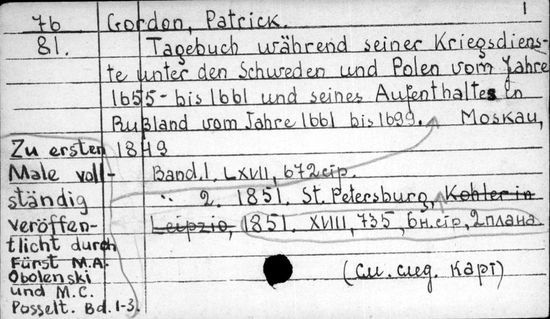 1
76 Gordon, Patrick.
81. Tagebuch während seiner Kriegsdiens-
te unter den Schweden und Polen vom Jahre
1655- bis 1661 und seines Aufenthaltes in
Rußland vom Jahre 1661 bis 1699. Moskau,
1849
Band. 1. LXVII, 672 стр.
" 2. 1851. St. Petersburg, Kohler in
Leipzig, 1851. XVIII, 735, 6 н. стр, 2 плана
(см. след. карт)
Zu ersten
Male voll-
ständig
veröffen-
tlicht durch
Fürst M.A.
Obolenski
und M.C.
Posselt. Bd. 1-3.